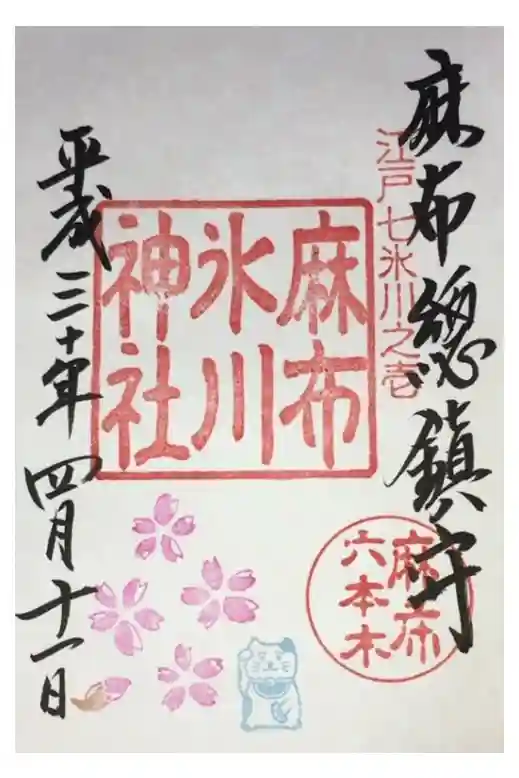 麻布總鎮守
江戸七氷川之壱
麻布
氷川
神社
麻布
六本木
平成三十年四月十一日